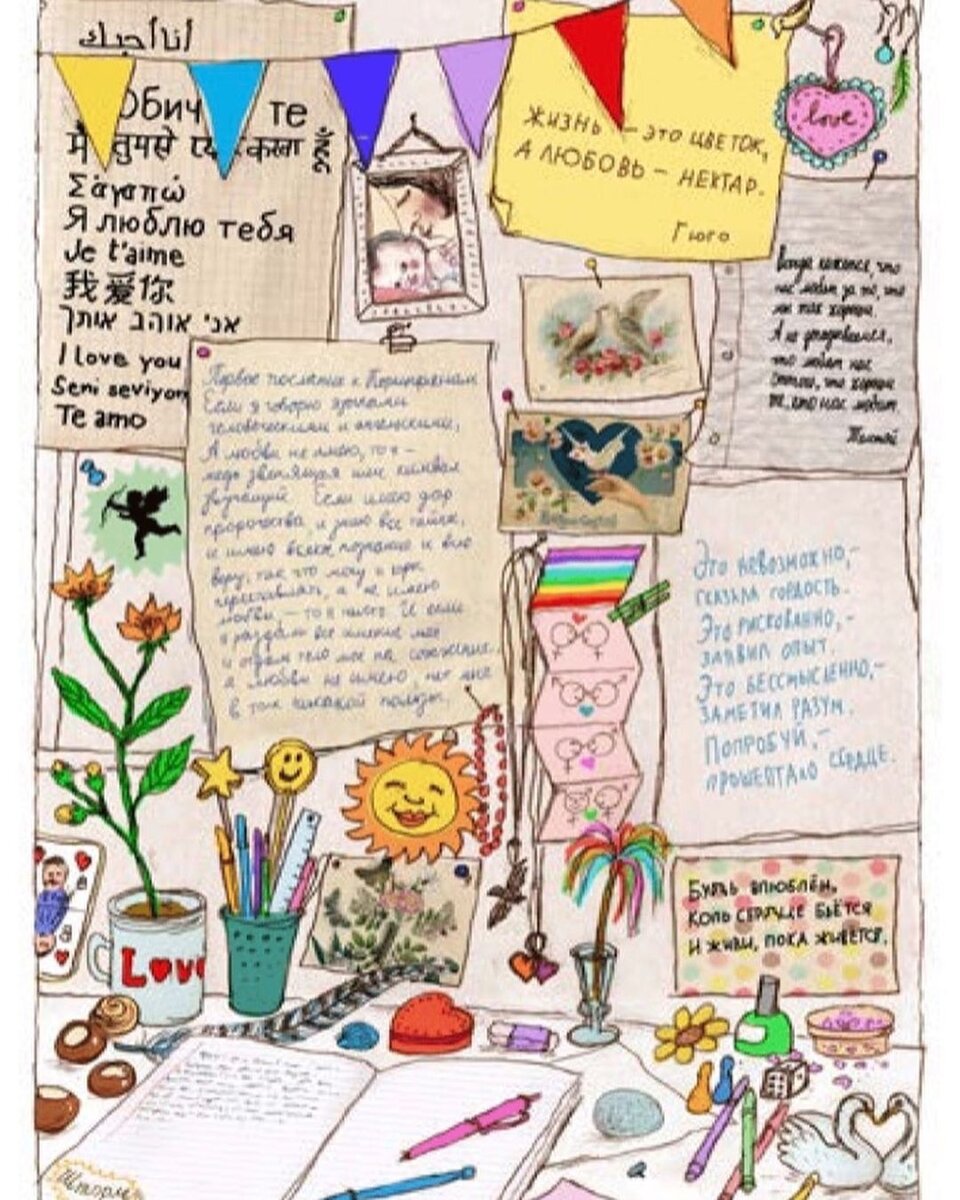 أنا أحبك
Обич те
मैं तुमसे प्य करता हूँ
Σ'αγαπώ
Я люблю тебя
Je t'aime
我爱你
אני אוהב אותך
I love you
Seni seviyor
Te amo
ЖИЗНЬ – ЭТО ЦВЕТОК,
А ЛЮБОВЬ – НЕКТАР.
Гюго
love
Всегда кажется, что
нас любят за то, что
мы так хороши.
А не догадываемся,
что любят нас
оттого, что хороши
те, кто нас любят.
Толстой
Первое послание к Коринфянам
Если я говорю языками
человеческими и ангельскими,
А любви не имею, то я –
медь звенящая или кимвал
звучащий. Если имею дар
пророчества, и знаю все тайны,
и имею всякое познание и всю
веру, так что могу и горы
переставлять, а не имею
любви – то я ничто. И если
я раздам все имение мое
и отдам тело мое на сожжение,
а любви не имею, нет мне
в том никакой пользы.
Это невозможно,–
сказала гордость.
Это рискованно,–
заявил опыт.
Это бессмысленно,–
заметил разум.
Попробуй,–
прошептало сердце.
Будь влюблён,
коль сердце бьётся
и живи, пока живётся.
Love